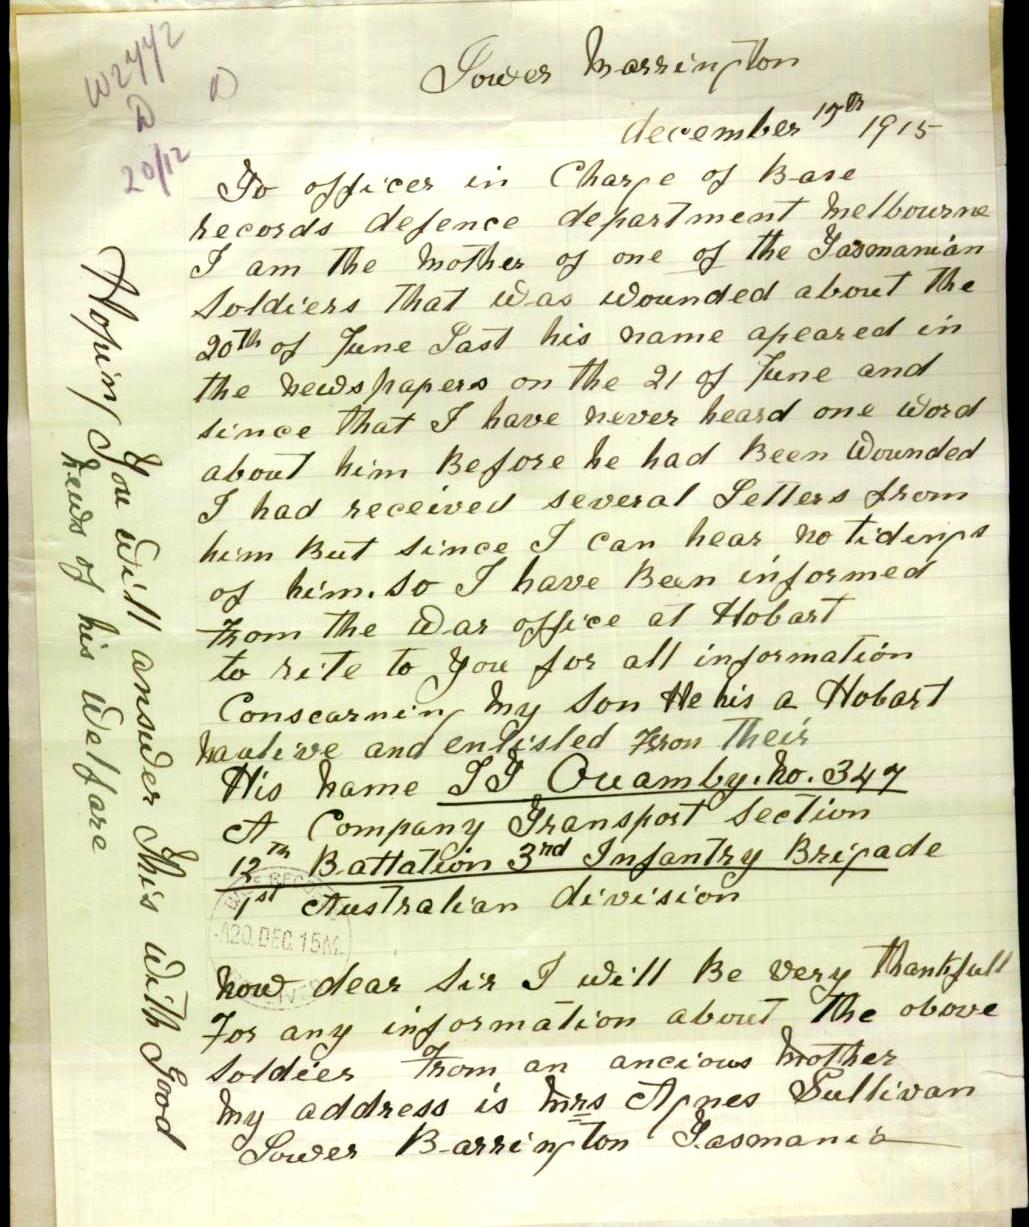 W2772
D D
20/12
Lower Barrington
december 17th 1915
To officer in Charge of Base
records defence department Melbourne
I am the Mother of one of the Tasmanian
Soldiers that was wounded about the
20th of June Last his name apeared in
the newspapers on the 21 of June and
since that I have never heard one word
about him Before he had Been Wounded
I had received several Letters from
him But since I can hear no tidings
of him. so I have Been informed
From the War office at Hobart
to rite to you for all information
Conscarning My Son He his a Hobart
nautive and enlisted From their
His name T J Quamby. No. 347
A Company Transport section
12th Battation 3rd Infantry Brigade
1st Australian division
BASE RECORDS
A20. DEC. 15M.
now dear Sir I will Be very thankfull
For any information about the above
soldier From an ancious Mother
My address is Mrs Agnes Sullivan
Lower Barrington Tasmania
Hoping You will answer This with Good
news of his Welfare